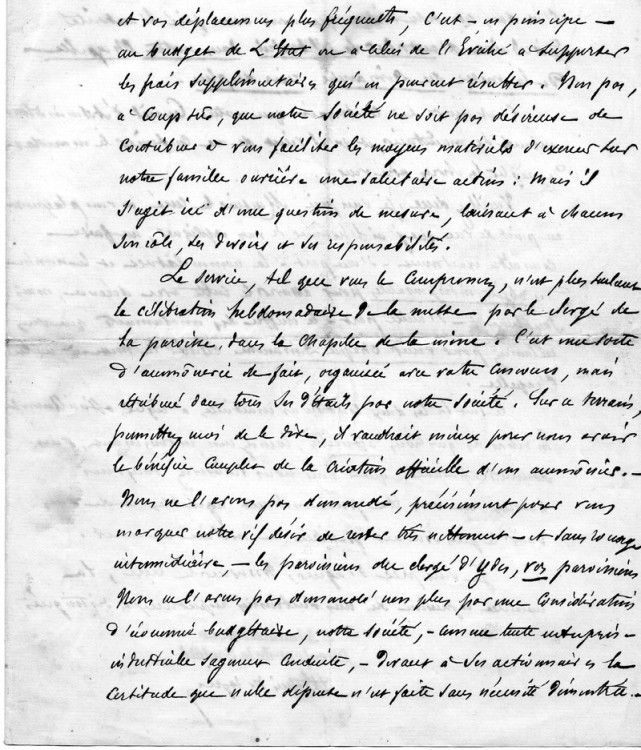 et vos déplacements plus fréquents, c'est – en principe –
au budget de l'Etat ou à celui de l'Evêché à supporter
les frais supplémentaires qui en peuvent résulter. Non pas,
à coup sûr, que notre Société ne soit pas désireuse de
contribuer et vous faciliter les moyens matériels d'exercer sur
notre famille ouvrière une salutaire action : mais il
s'agit ici d'une question de mesure, laissant à chacun
son rôle, ses devoirs et ses responsabilités.
Le service, tel que vous le comprenez, n'est plus seulement
la célébration hebdomadaire de la messe par le clergé de
la paroisse, dans la Chapelle de la mine. C'est une sorte
d'aumônerie de fait, organisée avec votre concours, mais
rétribuée dans tous ses détails par notre Société. Sur ce terrain,
permettez moi de le dire, il vaudrait mieux pour nous avoir
le bénéfice complet de la création officielle d'une aumônerie. –
Nous ne l'avons pas demandé, précisément pour vous
marquer notre vif désir de rester très nettement – et sans rouage
intermédiaire, – les paroissiens du clergé d'Ydes, vos paroissiens
Nous ne l'avons pas demandé non plus par une considération
d'économie budgétaire, notre Société, – comme toute entreprise
industrielle sagement conduite, – devant à ses actionnaires la
certitude que nulle dépense n'est faite sans nécessité démontrée. –